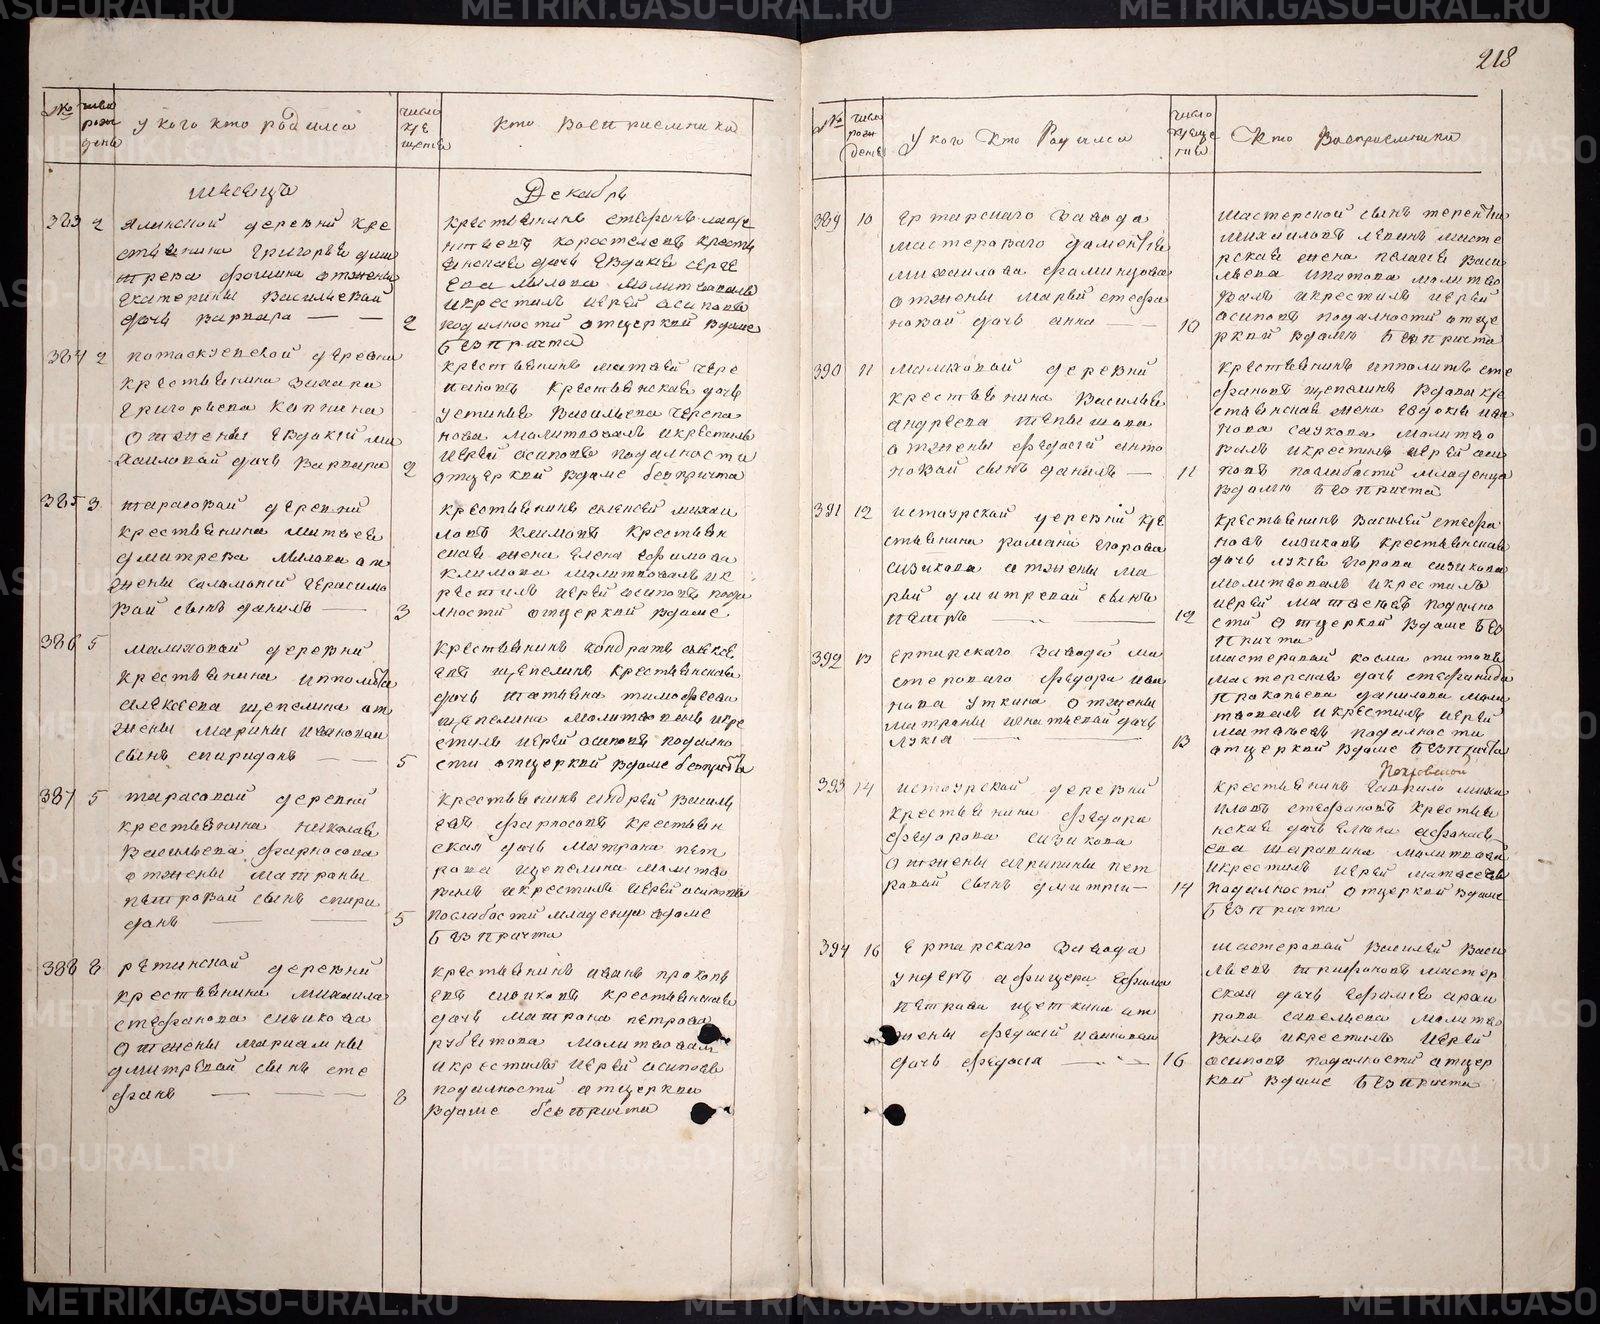 218
№
число рождень
У кого кто родился
число креще
Кто Восприемники
месяцъ
Декабрь
383 2
Ялинской деревни кре
стьянина Григорья дми
трева фомина отжены
Екатерины Васильевой
дочь варвара — — 2
крестьянинъ стефанъ
коростелевъ кресть
янская дочь Евдокия серге
ева молитвовалъ
икрестилъ иерей осиповъ
подалности отцеркви вдоме
безпричта
384 2
деревни
крестьянина захара
григорьева
отжены Евдокии ми
хаиловой дочь варвара 2
крестьянинъ матвей чере
пановъ крестьянская дочь
устинья васильева черепа
нова молитвовалъ икрестилъ
иерей осиповъ подалности
отцеркви вдоме безпричта
385 3
тарасовой деревни
крестьянина матвея
дмитрева от
жены соломонии герасимо
вой сынъ данилъ — 3
крестьянинъ алексей михаи
ловъ климовъ крестьян
ская жена елена ефимова
климова молитвовалъ ик
рестилъ иерей осиповъ пода
лности отцеркви вдоме
386 5
малиховой деревни
крестьянина ипполита
алексеева щепелина от
жены марины ивановой
сынъ спиридонъ — — 5
крестьянинъ кондратъ алексе
евъ щепелинъ крестьянская
дочь татьяна тимофеева
щепелина молитвовалъ икре
стилъ иерей осиповъ подално
сти отцеркви вдоме безпричта
387 5
тарасовой деревни
крестьянина николая
Васильева фарносова
отжены матроны
петровой сынъ спири
донъ — — 5
крестьянинъ андрей василь
евъ фарносовъ крестьян
ская дочь матрона пет
рова щепелина молитво
валъ икрестилъ иерей осиповъ
послабости младенца вдоме
безпричта
388 8
ретинской деревни
крестьянина михаила
стефанова сизикова
отжены мариамны
дмитревой сынъ сте
фанъ — — — 8
крестьянинъ иванъ прокопь
евъ сизиковъ крестьянская
дочь матрона петрова
молитвовалъ
икрестилъ иерей осиповъ
подалности отцеркви
вдоме безпричта
№
число рожденъ
У кого Кто Родился
число креще
Кто Восприемники
389 10
Ертарскаго Завода
мастероваго дометия
михаилова
отжены марьи стефа
новой дочь анна — — 10
мастерской сынъ терентий
михаиловъ масте
рская жена пелагея васи
льева ипатова молитво
валъ икрестилъ иерей
осиповъ подалности отце
ркви вдому безпричта
390 11
малиховой деревни
крестьянина василья
андреева
отжены федосьи анто
новой сынъ данилъ — 11
крестьянинъ ипполитъ сте
фановъ щепелинъ вдова кре
стьянская жена евдокия ива
нова молитво
валъ икрестилъ иерей оси
повъ послабости младенца
вдому безпричта
391 12
истоурской деревни кре
стьянина романа егорова
сизикова отжены ма
рьи дмитревой сынъ
петръ — — 12
крестьянинъ василей стефа
новъ сизиковъ крестьянская
дочь лукия егорова сизикова
молитвовалъ икрестилъ
иерей матвеевъ подално
сти отцеркви вдоме без
причта
392 13
Ертарскаго Завода ма
стероваго федора ива
нова уткина отжены
матроны игнатьевой дочь
лукия — — 13
мастеровой косма титовъ
мастерская дочь стефанида
прокопьева данилова моли
твовалъ икрестилъ иерей
матвеевъ подалности
отцеркви вдоме безпричта
393 14
истоурской деревни
крестьянина федора
федорова сизикова
отжены агрипины пет
ровой сынъ дмитри — 14
Покровской
крестьянинъ гаврило миха
иловъ стефановъ крестья
нская дочь афанась
ева шарапина молитвовалъ
икрестилъ иерей матвеевъ
подалности отцеркви вдоме
безпричта
394 16
Ертарскаго Завода
ундеръ афицера ефима
петрова щеткина от
жены федосьи ивановой
дочь федосья — — 16
мастеровой василей васи
льевъ трифоновъ мастер
ская дочь ефимия
савельева молитво
валъ икрестилъ иерей
осиповъ подалности отцер
кви вдоме безпричта